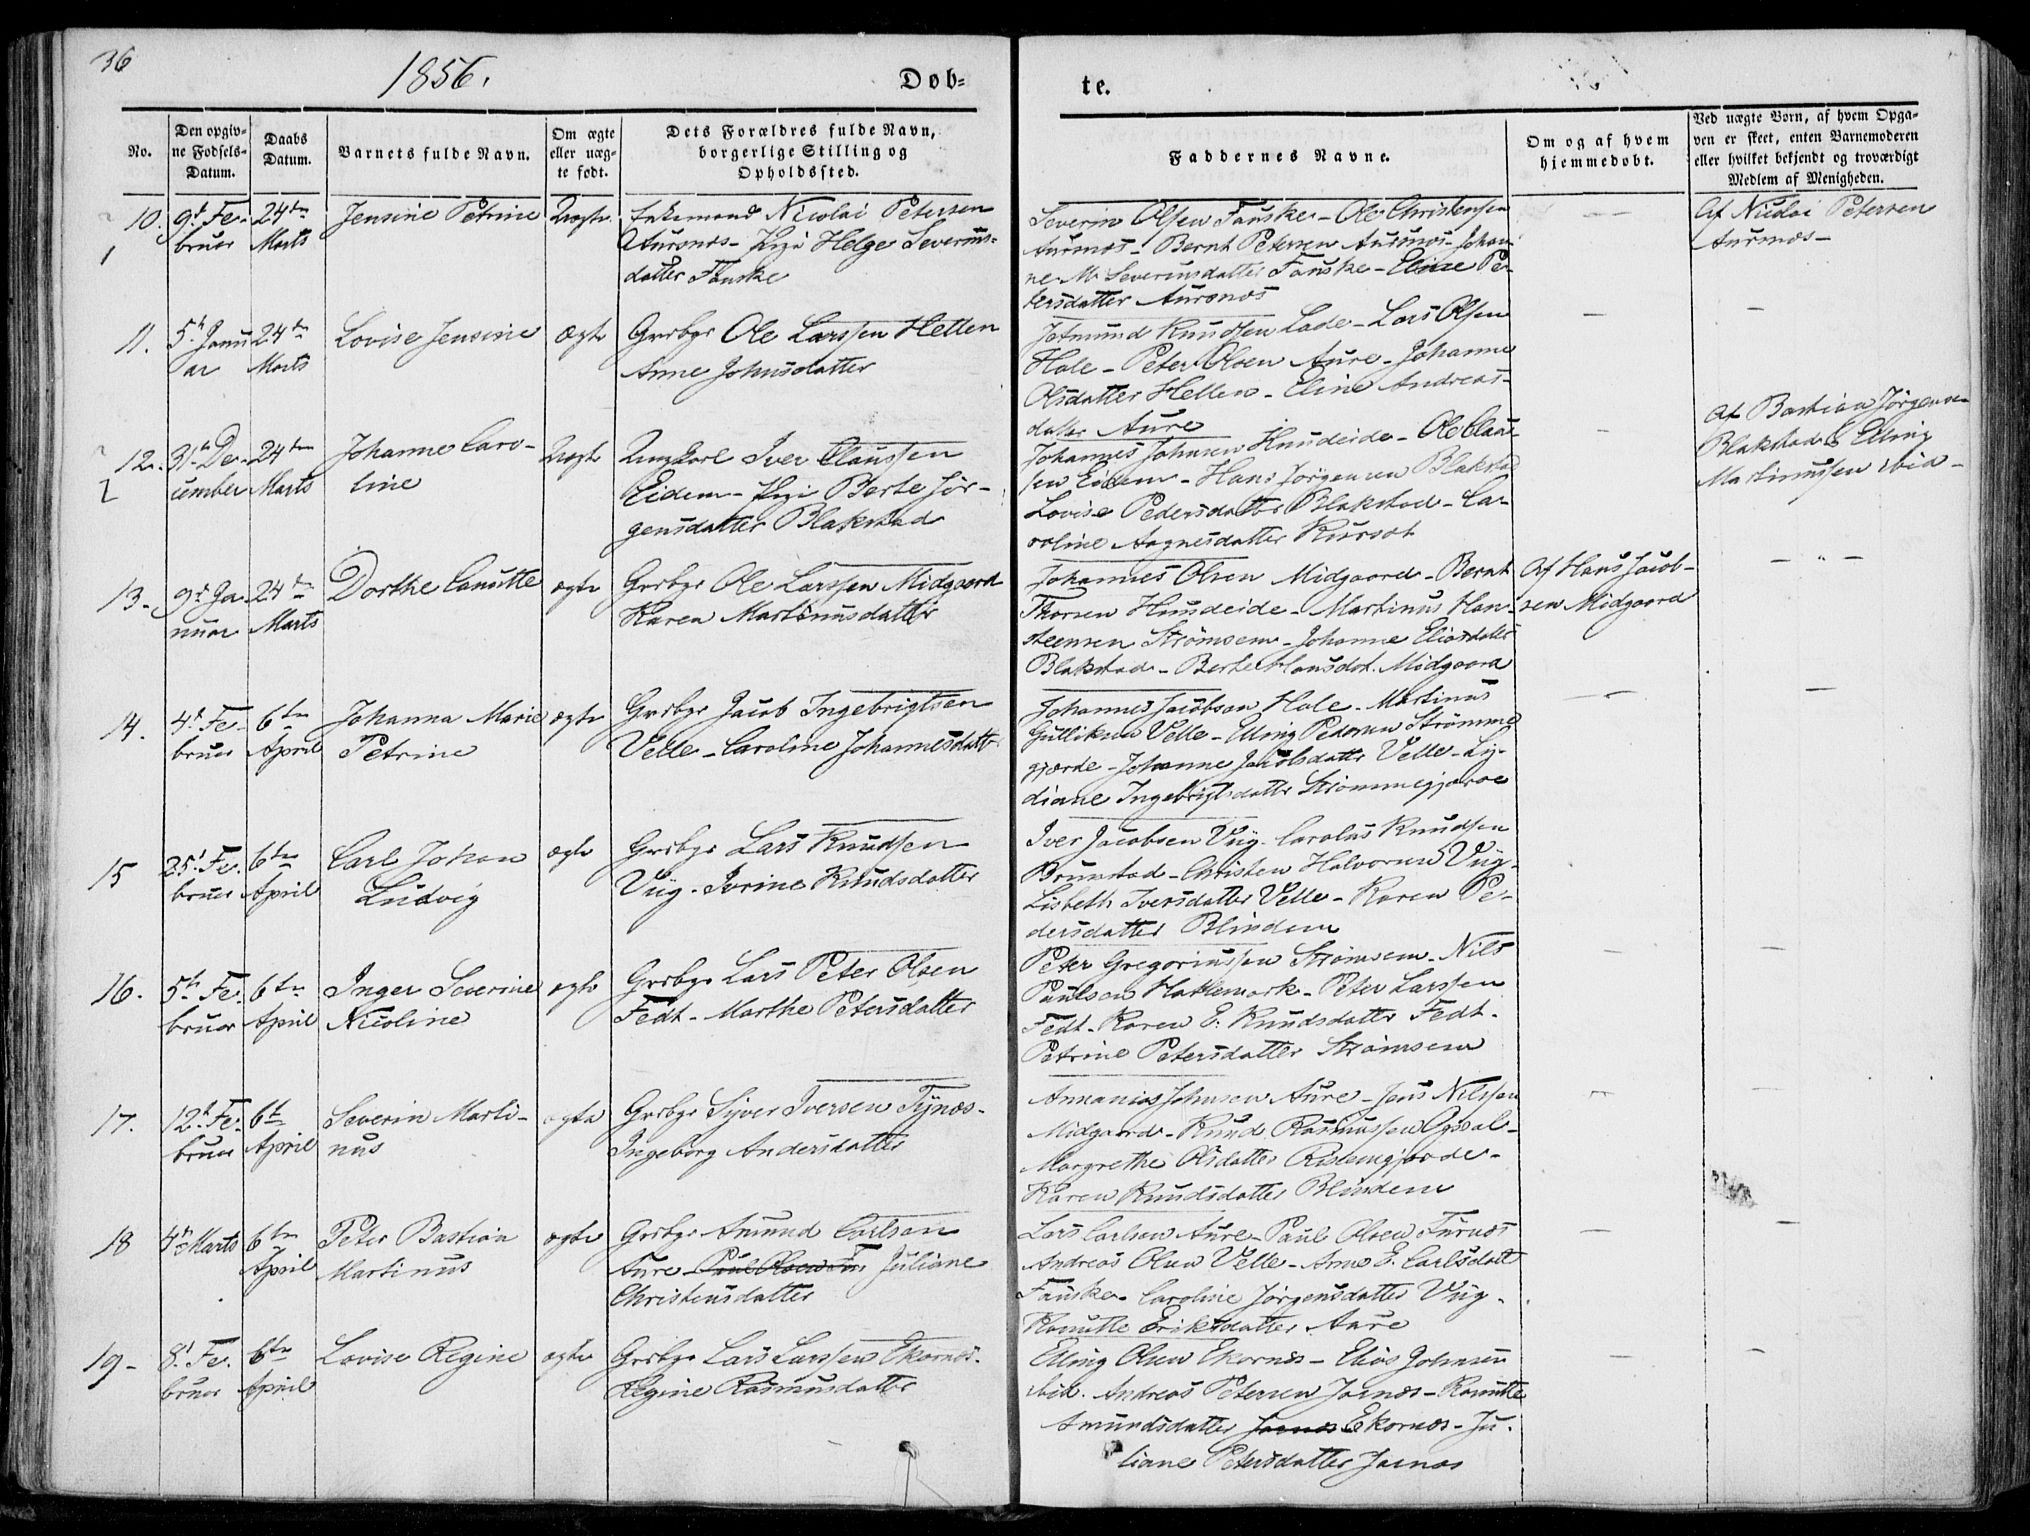 36
1856.
Døb=
te.
No.
Den opgiv=
ne Fødsels=
Datum.
Daabs
Datum.
Barnets fulde Navn.
Om ægte
eller uæg=
te født.
Dets Forældres fulde Navn,
borgerlige Stilling og
Opholdssted.
Faddernes Navne.
Om og af hvem
hjemmedøbt.
Ved uægte Børn, af hvem Opga=
ven er skeet, enten Barnemoderen
eller hvilket bekjendt og troværdigt
Medlem af Menigheden.
10.
1
9d Fe-
bruar
24de
Marts
Jensine Petrine
Uægte
Enkemand Nicolai Petersen
Aurenes - Pige Helge Severins-
datter Fauske
Severin Olsen Fauske - Ole Christensen
Aursnæs - Bernt Petersen Aursnæs - Johan-
ne M. Severinsdatter Fauske - Eline Pe-
tersdatter Aursnæs
Af Nicolai Petersen
Aursnæs -
11.
5t Janu
ar
24de
Marts
Lovise Jensine
Ægte
Grdbgr Ole Larssen Hellen
Anne Johnsdatter
Jetmund Knudsen Lade - Lars Olsen
Hole - Peter Olsen Aure - Johanne
Olsdatter Hellen - Eline Andreas-
datter Aure
12.
2
31te De-
cember
24de
Marts
Johanne Caro-
line
Uægte
Ungkarl Iver Claussen
Eidem - Pige Berte Jør-
gensdatter Blakstad
Johannes Johnsen Hundeide - Ole Claus-
sen Eidem - Hans Jørgensen Blakstad
Lovise Pedersdatter Blakstad - Ca-
roline Aagnesdatter Kursæt
Af Bastian Jørgensen
Blakstad & Elling
Martinussen ibid -
13.
9d Ja-
nuar
24de
Marts
Dorthe Canutte
ægte
Grdbgr Ole Larssen Midgaard
Karen Martinusdatter
Johannes Olsen Midgaard - Bernt
Thorsen Hundeide - Martinus Han-
steensen Strømsem - Johanne Eliasdatter
Blakstad - Berte Hansdot. Midgaard
Af Hans Jacob-
sen Midgaard
14.
4d Fe-
bruar
6te
April
Johanna Marie
Petrine
ægte
Grdbgr Jacob Ingebrigtsen
Velle - Caroline Johannesdatter
Johannes Jacobsen Hole - Martinus
Gulliksen Velle - Elling Pedersen Strømme
gjærde - Johanne Jacobsdatter Velle - Ly-
diane Ingebrigtsdatter Strømmegjærde
15
25d Fe-
bruar
6te
April
Carl Johan
Ludvig
ægte
Grdbgr Lars Knudsen
Viig - Ivrine Knudsdatter
Iver Jacobsen Viig - Carolus Knudsen
Brunstad - Christen Halvorsen Viig -
Lisbeth Iversdatter Velle - Karen Pe-
dersdatter Blindem
16.
5te Fe-
bruar
6te
April
Inger Severine
Nicoline
ægte
Grdbgr Lars Peter Olsen
Fedt - Marthe Petersdatter
Peter Gregoriussen Strømsem - Nils
Paulsen Hatlemark - Peter Larssen
Fedt - Karen E. Knudsdatter Fedt -
Petrine Petersdatter Strømsem
17.
12t Fe-
bruar
6te
April
Severin Marti-
nus
ægte
Grdbgr Syver Iversen Tynæs -
Ingeborg Andersdatter
Annanias Johnsen Aure - Jens Nilssen
Midgaard - Knud Rasmussen
Margrethe Olsdatter
Karen Knudsdatter Blindem
18
4de Marts
6te
April
Peter Bastian
Martinus
ægte
Grdbgr Amund Carlsen
Aure - Paul Olsen Tu Juliane
Christensdatter
Lars Carlsen Aure - Paul Olsen Turnæs
Andreas Olsen Velle - Anne E. Carlsdatt
Fauske - Caroline Jørgensdatter Viig -
Kanutte Eriksdatter Aure
19 -
8d Fe-
bruar
6te
April
Lovise Regine
ægte
Grdbgr Lars Larssen Ekornæs -
Regine Rasmusdatter
Elling Olsen Ekornæs - Elias Johnsen
ibid. Andreas Petersen Jarnæs - Kanutte
Amundsdatter Jarnæs Ekornæs - Ju-
liane Petersdatter Jarnæs